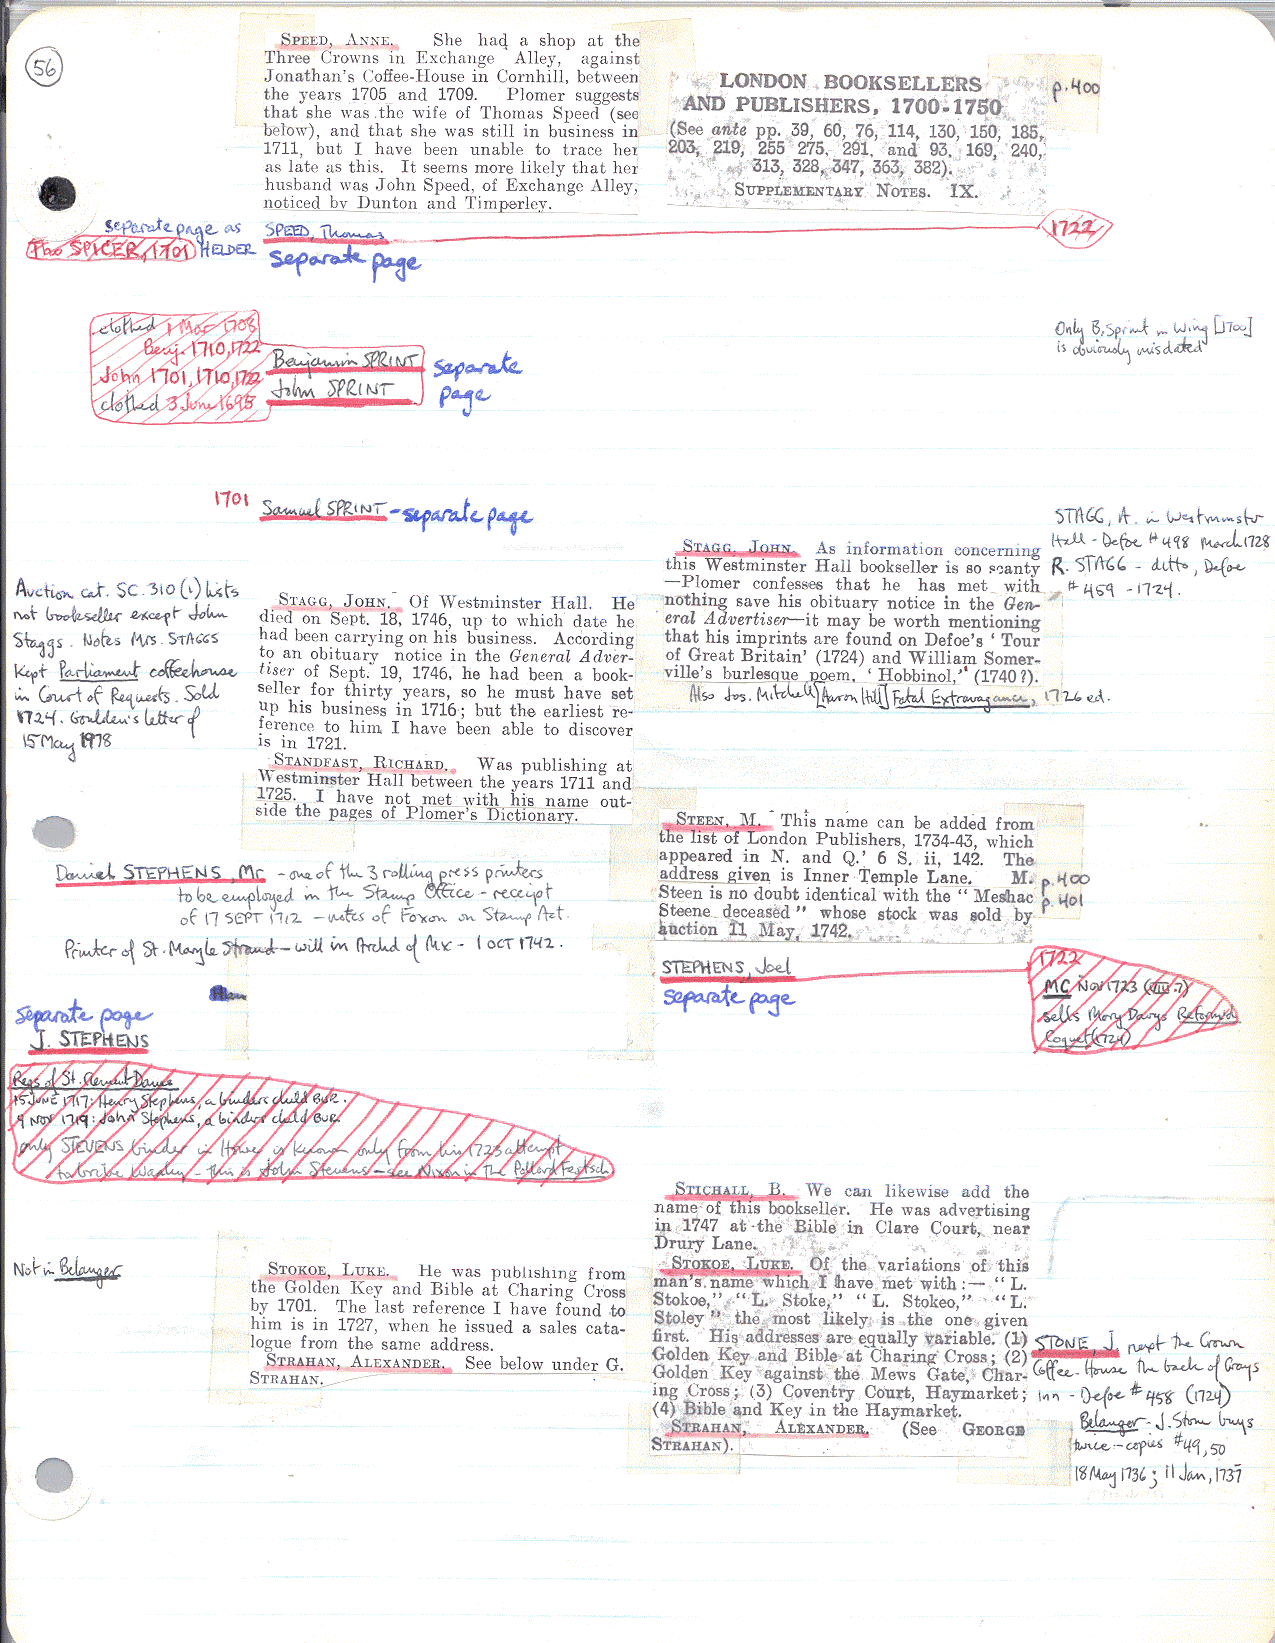 56
SPEED, ANNE. She had a shop at the
Three Crowns in Exchange Alley, against
Jonathan's Coffee-House in Cornhill, between
the years 1705 and 1709. Plomer suggests
that she was the wife of Thomas Speed (see
below), and that she was still in business in
1711, but I have been unable to trace her
as late as this. It seems more likely that her
husband was John Speed, of Exchange Alley,
noticed by Dunton and Timperley.
LONDON BOOKSELLERS
AND PUBLISHERS, 1700-1750
(See ante pp. 39, 60, 76, 114, 130, 150, 185,
203, 219, 255 275, 291, and 93, 169, 240,
313, 328, 347, 363, 382).
SUPPLEMENTARY NOTES. IX.
p.400
separate page as
SPICER, 1701 HELDER
SPEED, Thomas
separate page
1722
clothed 1 Mar 1708
Benj. 1710, 1722
John 1701, 1710, 1722
clothed 3 June 1695
Benjamin SPRINT
John SPRINT
separate
page
Only B. Sprint in Wing [1700]
is obviously misdated
1701 Samuel SPRINT - separate page
STAGG, A. in Westminster
Hall - Defoe #498 March 1728
R. STAGG - ditto, Defoe
#459 - 1724.
Auction cat. SC. 310 (1) lists
not bookseller except John
Staggs. Notes Mrs. STAGGS
Kept Parliament coffeehouse
in Court of Requests. Sold
1724. Goulden's letter of
15 May 1978
STAGG, JOHN. Of Westminster Hall. He
died on Sept. 18, 1746, up to which date he
had been carrying on his business. According
to an obituary notice in the General Adver-
tiser of Sept. 19, 1746, he had been a book-
seller for thirty years, so he must have set
up his business in 1716; but the earliest re-
ference to him I have been able to discover
is in 1721.
STANDFAST, RICHARD. Was publishing at
Westminster Hall between the years 1711 and
1725. I have not met with his name out-
side the pages of Plomer's Dictionary.
STAGG, JOHN. As information concerning
this Westminster Hall bookseller is so scanty
—Plomer confesses that he has met with
nothing save his obituary notice in the Gen-
eral Advertiser—it may be worth mentioning
that his imprints are found on Defoe's 'Tour
of Great Britain' (1724) and William Somer-
ville's burlesque poem, 'Hobbinol,' (1740?).
Also Jos. Mitchell [Aaron Hill] Fatal Extravagance, 1726 ed.
STEEN, M. This name can be added from
the list of London Publishers, 1734-43, which
appeared in N. and Q.' 6 S. ii, 142. The
address given is Inner Temple Lane. M.
Steen is no doubt identical with the "Meshac
Steene deceased" whose stock was sold by
auction 11 May, 1742.
p.400
p.401
Daniel STEPHENS, Mr - one of the 3 rolling press printers
to be employed in the Stamp Office - receipt
of 17 SEPT 1712 - notes of Foxon on Stamp Act.
Printer of St. Mary le Strand - will in Archd of Mx - 1 OCT 1742.
STEPHENS, Joel
separate page
1722
MC Nov 1723 (VIII.7)
sells Mary Davys Reform'd
Coquet (1724)
separate page
J. STEPHENS
Regs of St. Clement Danes
15 JUNE 1717: Henry Stephens, a binders child BUR.
9 NOV 1719: John Stephens, a binders child BUR.
only STEVENS binder in Howe is known only from his 1723 attempt
to bribe Wanley - this is John Stevens - see Nixon in the Pollard Festsch
STICHALL, B. We can likewise add the
name of this bookseller. He was advertising
in 1747 at the Bible in Clare Court, near
Drury Lane.
STOKOE, LUKE. Of the variations of this
man's name which I have met with:— "L.
Stokoe," "L. Stoke," "L. Stokeo," "L.
Stoley" the most likely is the one given
first. His addresses are equally variable. (1)
Golden Key and Bible at Charing Cross; (2)
Golden Key against the Mews Gate, Char-
ing Cross; (3) Coventry Court, Haymarket;
(4) Bible and Key in the Haymarket.
STRAHAN, ALEXANDER. (See GEORGE
STRAHAN).
Not in Belanger
STOKOE, LUKE. He was publishing from
the Golden Key and Bible at Charing Cross
by 1701. The last reference I have found to
him is in 1727, when he issued a sales cata-
logue from the same address.
STRAHAN, ALEXANDER. See below under G.
STRAHAN.
STONE, J next the Crown
Coffee-House the back of Grays
Inn - Defoe #458 (1724)
Belanger - J. Stone buys
twice - copies #49, 50
18 May 1736; 11 Jan, 1737